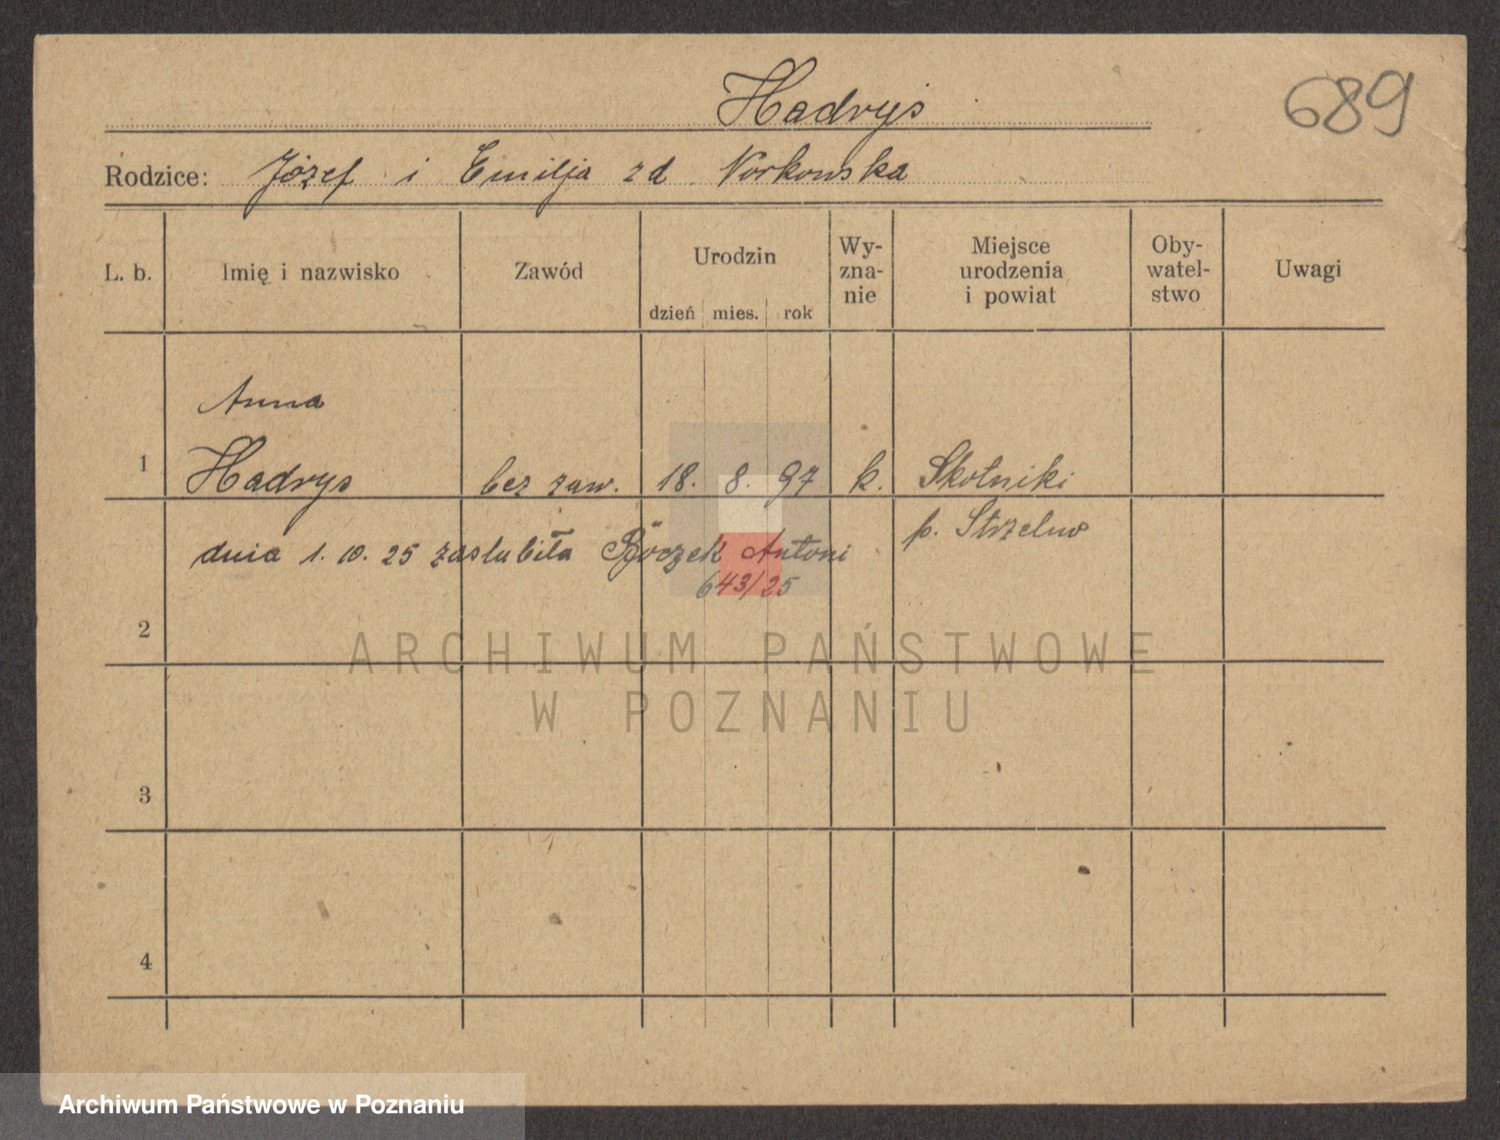 Hadryś
689
Rodzice: Józef i Emilja zd Norkowska
L. b. Imię i nazwisko Zawód Urodzin dzień mies. rok Wy-zna-nie Miejsce urodzenia i powiat Oby-watel-stwo Uwagi
Anna
1 Hadrys bez zaw. 18. 8. 97 k. Skotniki
p. Strzelno
dnia 1. 10. 25 zaslubiła Antoni
643/25
2
ARCHIWUM PAŃSTWOWE
W POZNANIU
3
4
Archiwum Państwowe w Poznaniu